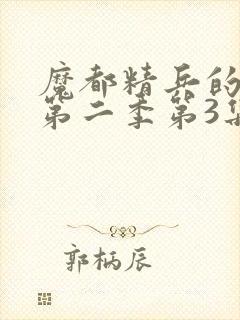 魔都精兵的
第二季第3集
郭柄辰